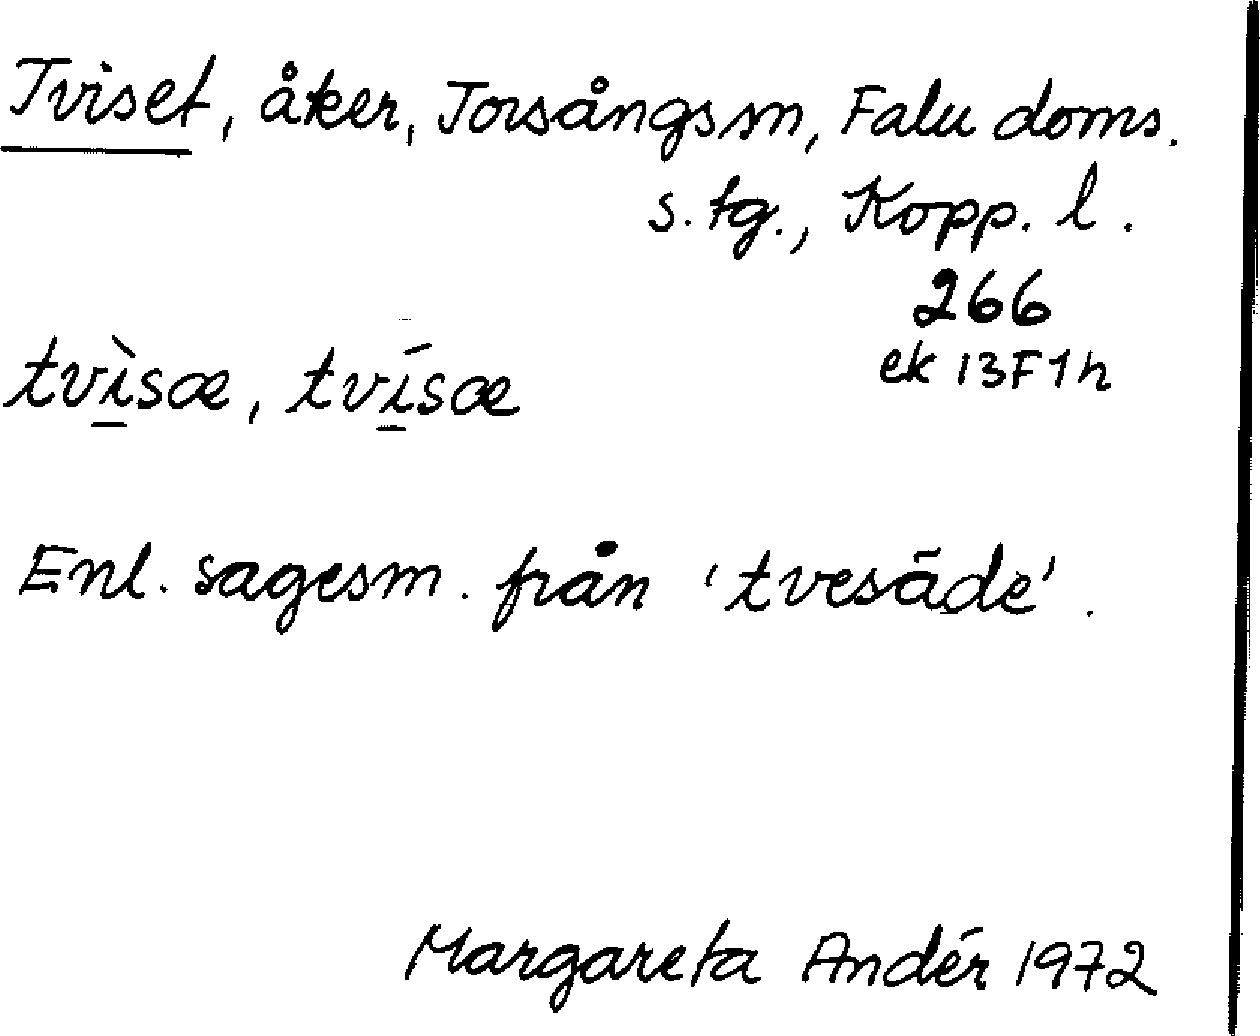 Tviset, åker, Torsångs sn, Falu doms.
s. tg., Kopp. l.
266
ek 13F1h
tvì̠sæ, tví̠sæ
Enl. sagesm. från 'tvesäde'.
Margareta Andér 1972